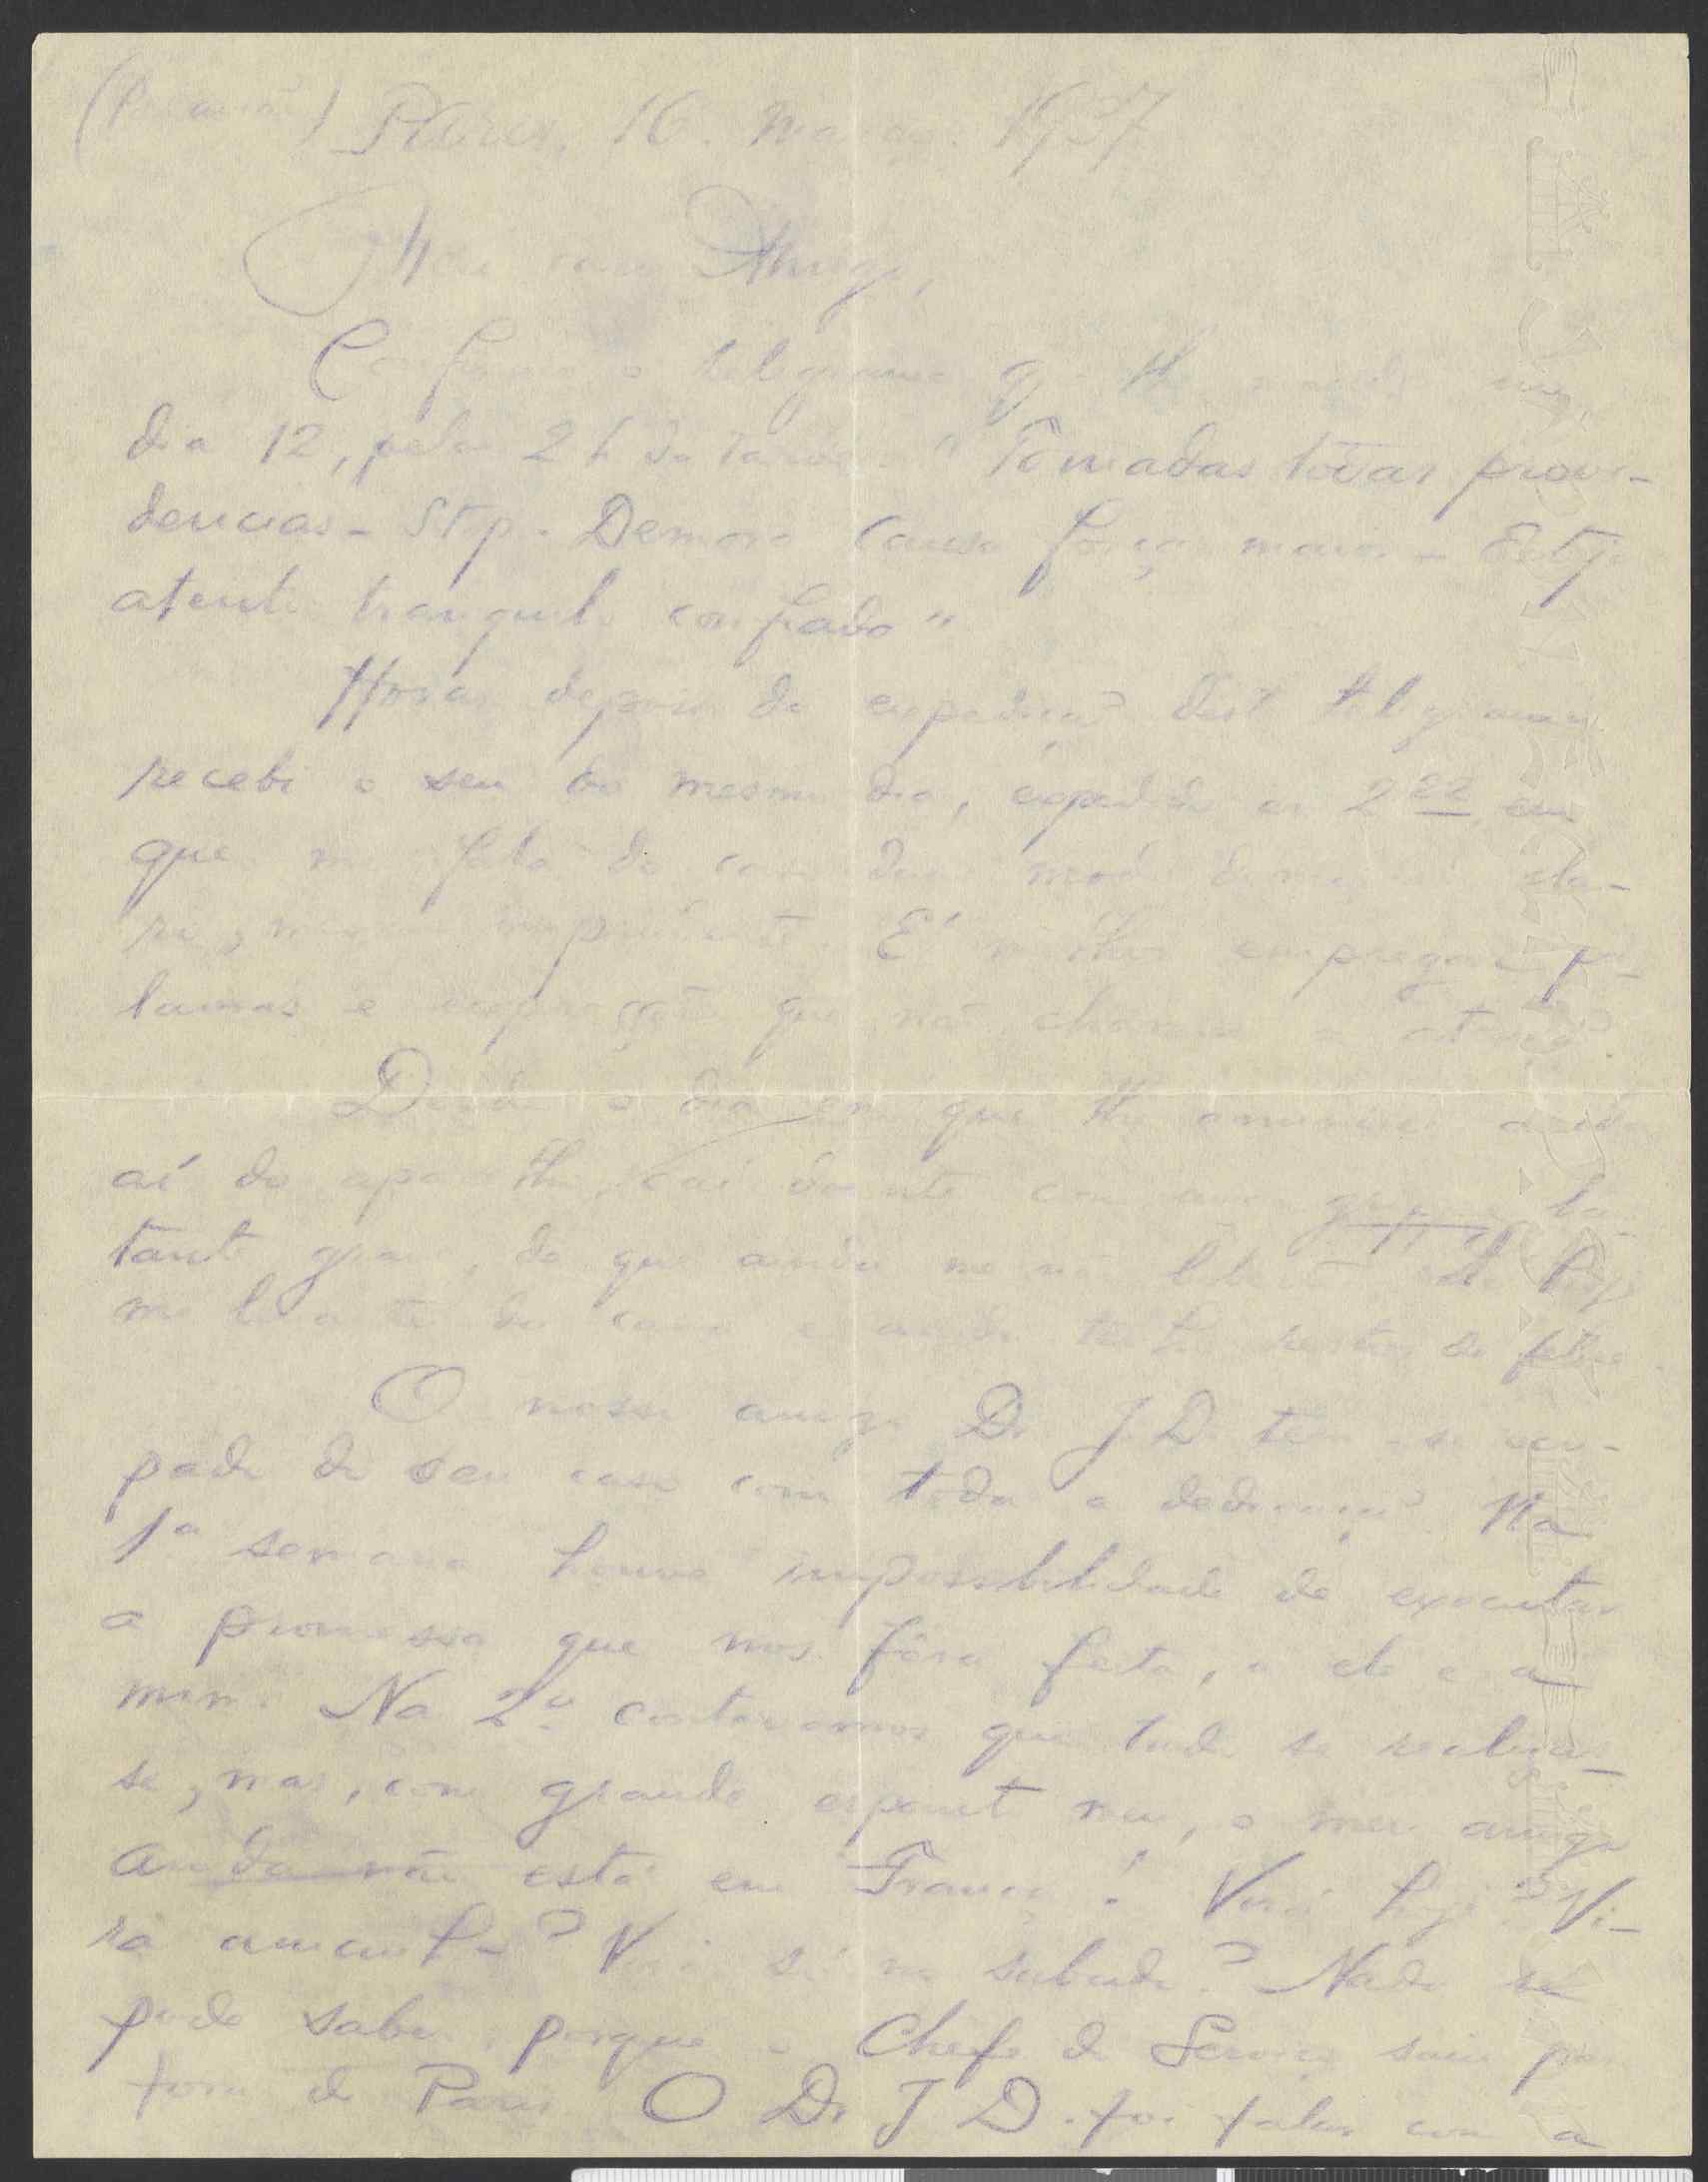 Paris, 16. Março. 1937
Meu caro Amigo,
Confirmo o telegrama q. lhe mandei em
dia 12, pelas 2 h da tarde: "Tomadas todas provi-
dencias - Stop. Demora causa força maior - Esteja
atento tranquilo confiado"
Horas depois da expedição deste telegrama
recebi o seu do mesmo dia, expedido ás 2 22 em
que me fala do caso dum modo demasiado cla-
ro, mesmo imprudente. É melhor empregar pa-
lavras e expressões que não chamem a atenção.
Desde o dia em que lhe anunciei a ida
aí do aparelho, caí doente com uma grippe bas-
tante grave, de que ainda me não libertei. Só hoje
me levantei da cama e ainda tenho restos de febre.
O nosso amigo Dr. J. D. tem-se ocu-
pado do seu caso com toda a dedicação. Na
1ª semana houve impossibilidade de executar
a promessa que nos fôra feita, a ele e a
mim. Na 2ª contavamos que tudo se realizas-
se, mas, com grande espanto meu, o meu amigo
ainda não está em França! Virá hoje? Vi-
rá amanhã? Virá só no sabado? Nada se
pode saber porque o Chefe de Serviço saiu para
fora de Paris. O Dr. J. D. foi falar com a